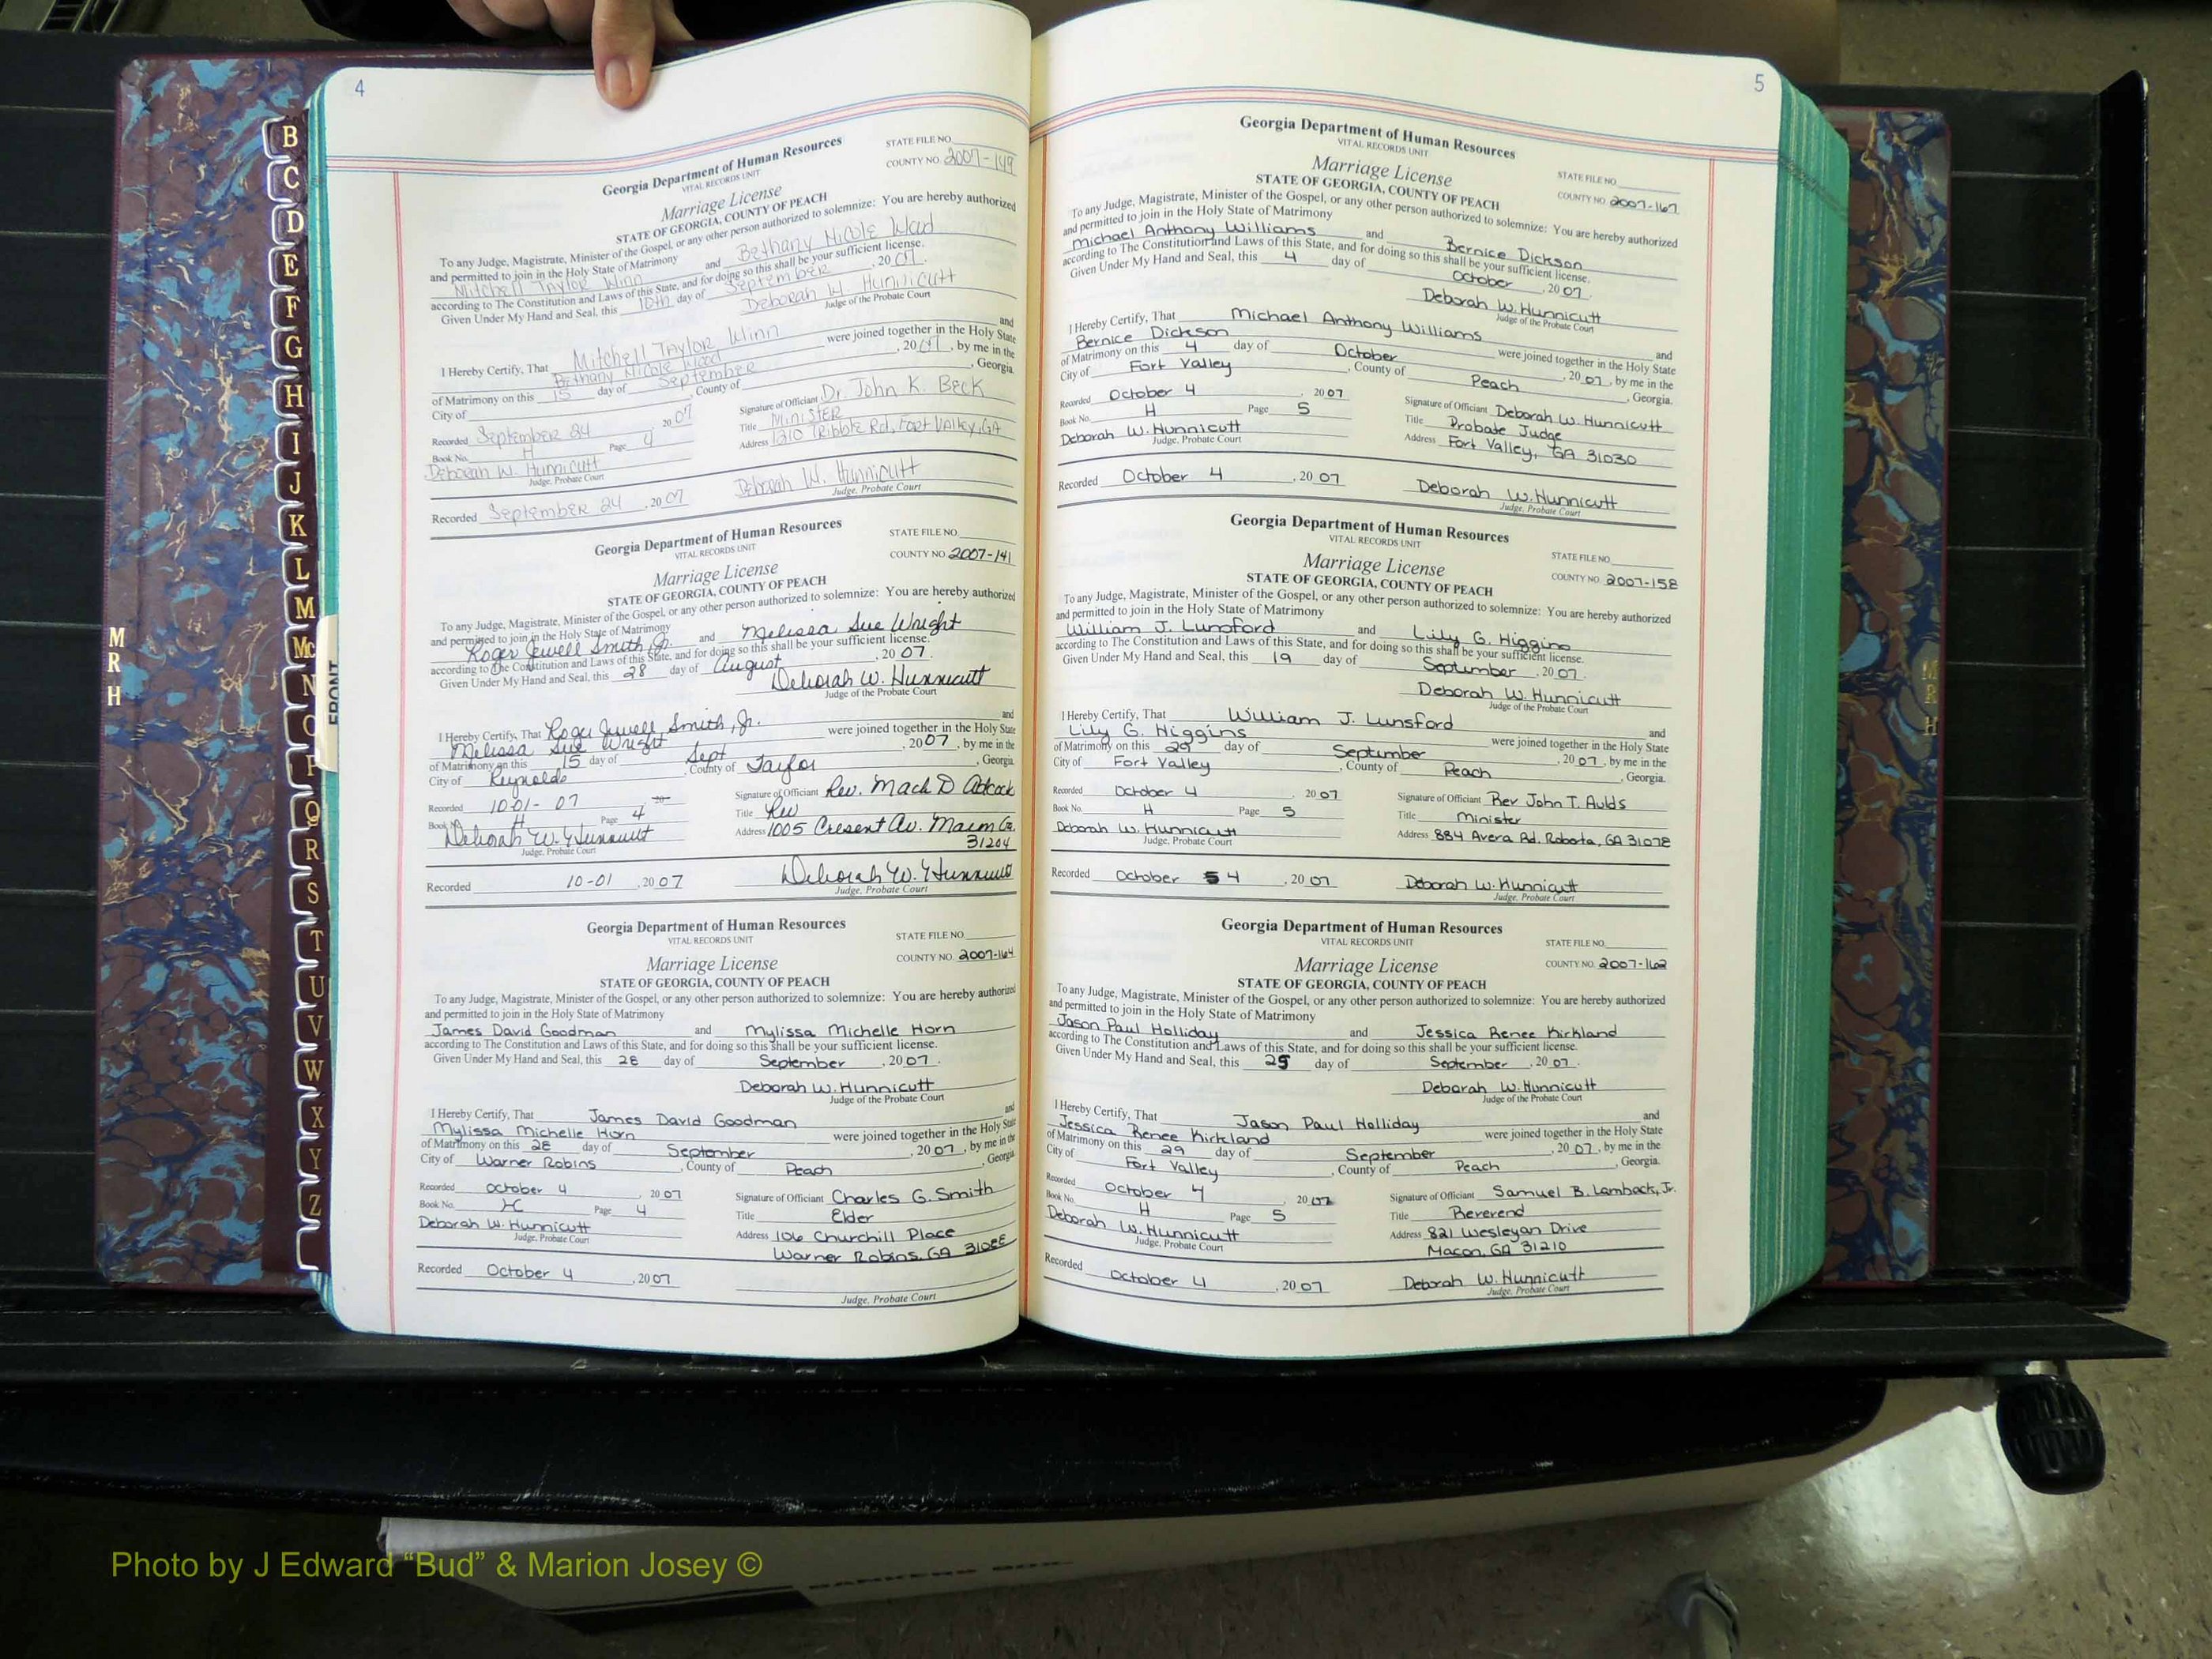 4
Georgia Department of Human Resources
VITAL RECORDS UNIT
STATE FILE NO.
COUNTY NO. 2007-149
Marriage License
STATE OF GEORGIA, COUNTY OF PEACH
To any Judge, Magistrate, Minister of the Gospel, or any other person authorized to solemnize: You are hereby authorized
and permitted to join in the Holy State of Matrimony
Mitchell Taylor Winn and Bethany Nicole Ward
according to The Constitution and Laws of this State, and for doing so this shall be your sufficient license.
Given Under My Hand and Seal, this 10th day of September, 2007.
Deborah W. Hunnicutt
Judge of the Probate Court
I Hereby Certify, That Mitchell Taylor Winn and
Bethany Nicole Ward were joined together in the Holy State
of Matrimony on this 15 day of September, 2007, by me in the
City of , County of , Georgia.
Recorded September 24 2007
Signature of Officiant Dr. John K. Beck
Book No. H Page 4
Title Minister
Deborah W. Hunnicutt
Address 1210 Tribble Rd, Fort Valley, GA
Judge, Probate Court
Recorded September 24, 2007 Deborah W. Hunnicutt
Judge, Probate Court
Georgia Department of Human Resources
VITAL RECORDS UNIT
STATE FILE NO.
COUNTY NO. 2007-141
Marriage License
STATE OF GEORGIA, COUNTY OF PEACH
To any Judge, Magistrate, Minister of the Gospel, or any other person authorized to solemnize: You are hereby authorized
and permitted to join in the Holy State of Matrimony
Roger Jewell Smith, Jr. and Melissa Sue Wright
according to The Constitution and Laws of this State, and for doing so this shall be your sufficient license.
Given Under My Hand and Seal, this 28 day of August, 2007.
Deborah W. Hunnicutt
Judge of the Probate Court
I Hereby Certify, That Roger Jewell Smith, Jr. and
Melissa Sue Wright were joined together in the Holy State
of Matrimony on this 15 day of Sept, 2007, by me in the
City of Reynolds, County of Taylor, Georgia.
Recorded 10-01-07 20
Signature of Officiant Rev. Mack D Adcock
Book No. H Page 4
Title Rev
Deborah W. Hunnicutt
Address 1005 Cresent Av. Macon Ga.
31204
Judge, Probate Court
Recorded 10-01, 2007 Deborah W. Hunnicutt
Judge, Probate Court
Georgia Department of Human Resources
VITAL RECORDS UNIT
STATE FILE NO.
COUNTY NO. 2007-164
Marriage License
STATE OF GEORGIA, COUNTY OF PEACH
To any Judge, Magistrate, Minister of the Gospel, or any other person authorized to solemnize: You are hereby authorized
and permitted to join in the Holy State of Matrimony
James David Goodman and Mylissa Michelle Horn
according to The Constitution and Laws of this State, and for doing so this shall be your sufficient license.
Given Under My Hand and Seal, this 28 day of September, 2007.
Deborah W. Hunnicutt
Judge of the Probate Court
I Hereby Certify, That James David Goodman and
Mylissa Michelle Horn were joined together in the Holy State
of Matrimony on this 28 day of September, 2007, by me in the
City of Warner Robins, County of Peach, Georgia
Recorded October 4, 2007
Signature of Officiant Charles G. Smith
Book No. H Page 4
Title Elder
Deborah W. Hunnicutt
Address 106 Churchill Place
Judge, Probate Court
Warner Robins, GA 31088
Recorded October 4, 2007
Judge, Probate Court
5
Georgia Department of Human Resources
VITAL RECORDS UNIT
Marriage License
STATE FILE NO.
STATE OF GEORGIA, COUNTY OF PEACH
COUNTY NO. 2007-167
To any Judge, Magistrate, Minister of the Gospel, or any other person authorized to solemnize: You are hereby authorized
and permitted to join in the Holy State of Matrimony
Michael Anthony Williams and Bernice Dickson
according to The Constitution and Laws of this State, and for doing so this shall be your sufficient license.
Given Under My Hand and Seal, this 4 day of October, 2007.
Deborah W. Hunnicutt
Judge of the Probate Court
I Hereby Certify, That Michael Anthony Williams and
Bernice Dickson were joined together in the Holy State
of Matrimony on this 4 day of October, 2007, by me in the
City of Fort Valley, County of Peach, Georgia.
Recorded October 4, 2007
Signature of Officiant Deborah W. Hunnicutt
Book No. H Page 5
Title Probate Judge
Deborah W. Hunnicutt
Address Fort Valley, GA 31030
Judge, Probate Court
Recorded October 4, 2007 Deborah W. Hunnicutt
Judge, Probate Court
Georgia Department of Human Resources
VITAL RECORDS UNIT
Marriage License
STATE FILE NO.
STATE OF GEORGIA, COUNTY OF PEACH
COUNTY NO. 2007-158
To any Judge, Magistrate, Minister of the Gospel, or any other person authorized to solemnize: You are hereby authorized
and permitted to join in the Holy State of Matrimony
William J. Lunsford and Lily G. Higgins
according to The Constitution and Laws of this State, and for doing so this shall be your sufficient license.
Given Under My Hand and Seal, this 19 day of September, 2007.
Deborah W. Hunnicutt
Judge of the Probate Court
I Hereby Certify, That William J. Lunsford and
Lily G. Higgins were joined together in the Holy State
of Matrimony on this 29 day of September, 2007, by me in the
City of Fort Valley, County of Peach, Georgia.
Recorded October 4, 2007
Signature of Officiant Rev John T. Aulds
Book No. H Page 5
Title Minister
Deborah W. Hunnicutt
Address 884 Avera Rd. Roberta, GA 31078
Judge, Probate Court
Recorded October 4, 2007 Deborah W. Hunnicutt
Judge, Probate Court
Georgia Department of Human Resources
VITAL RECORDS UNIT
STATE FILE NO.
Marriage License
COUNTY NO. 2007-162
STATE OF GEORGIA, COUNTY OF PEACH
To any Judge, Magistrate, Minister of the Gospel, or any other person authorized to solemnize: You are hereby authorized
and permitted to join in the Holy State of Matrimony
Jason Paul Holliday and Jessica Renee Kirkland
according to The Constitution and Laws of this State, and for doing so this shall be your sufficient license.
Given Under My Hand and Seal, this 25 day of September, 2007.
Deborah W. Hunnicutt
Judge of the Probate Court
I Hereby Certify, That Jason Paul Holliday and
Jessica Renee Kirkland were joined together in the Holy State
of Matrimony on this 29 day of September, 2007, by me in the
City of Fort Valley, County of Peach, Georgia.
Recorded October 4, 2007
Signature of Officiant Samuel B. Lamback, Jr.
Book No. H Page 5
Title Reverend
Deborah W. Hunnicutt
Address 821 Wesleyan Drive
Judge, Probate Court
Macon, GA 31210
Recorded October 4, 2007 Deborah W. Hunnicutt
Judge, Probate Court
B
C
D
E
F
G
H
I
J
K
L
M
Mc
N
O
P
Q
R
S
T
U
V
W
X
Y
Z
FRONT
M
R
H
M
R
H
Photo by J Edward “Bud” & Marion Josey ©